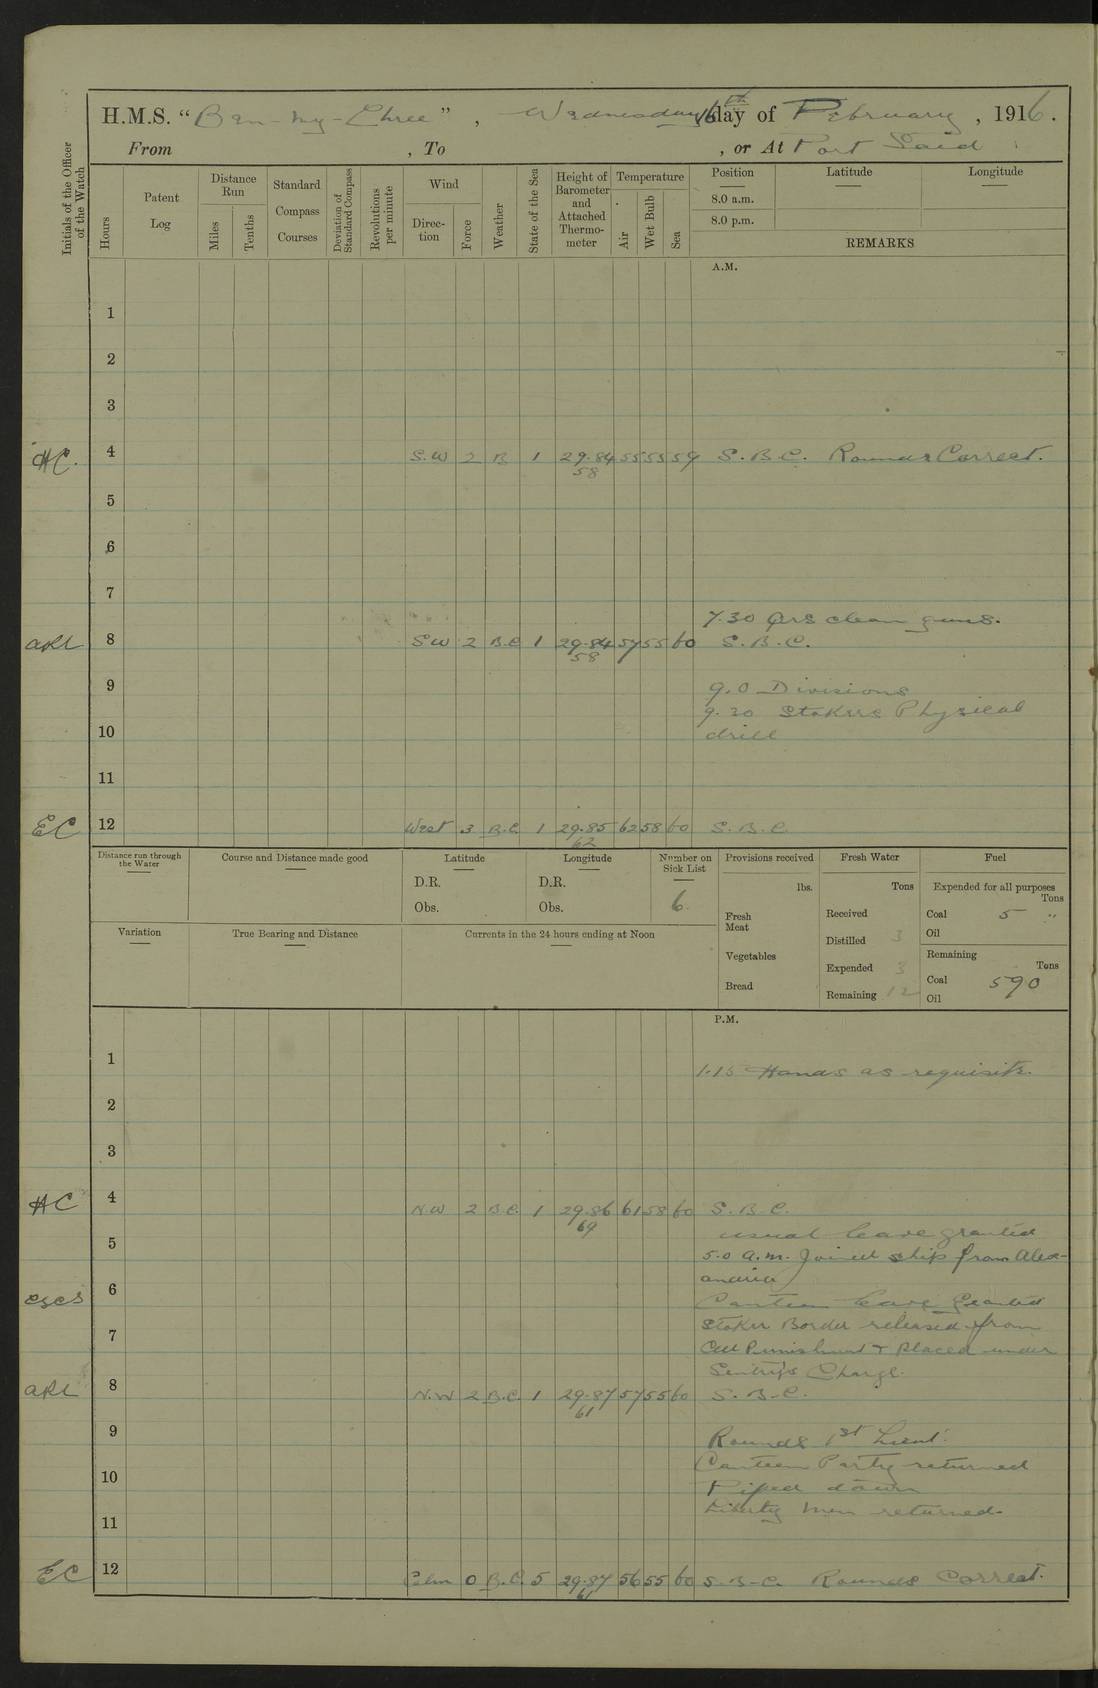 H.M.S. “Ben-my-Chree” , Wednesday 16th day of February , 1916.
From , To , or At Port Said
Initials of the Officer of the Watch
Hours
Patent Log
Distance Run
Miles
Tenths
Standard Compass Courses
Deviation of Standard Compass
Revolutions per minute
Wind
Direction
Force
Weather
State of the Sea
Height of Barometer and Attached Thermometer
Temperature
Air
Wet Bulb
Sea
Position Latitude Longitude
8.0 a.m.
8.0 p.m.
REMARKS
A.M.
1
2
3
HC. 4 S.W 2 B 1 29.84 55 53 59 S.B.C. Rounds Correct.
58
5
6
7
7.30 Qrs clean guns.
ARL 8 SW 2 B.C 1 29.84 57 55 60 S.B.C.
58
9 9.0 Divisions
9.30 Stokers Physical
10 drill
11
EC 12 West 3 B.C. 1 29.85 62 58 60 S.B.C.
62
Distance run through the Water
Course and Distance made good
Latitude
D.R.
Obs.
Longitude
D.R.
Obs.
Number on Sick List
6
Provisions received
lbs.
Fresh Meat
Vegetables
Bread
Fresh Water
Tons
Received
Distilled 3
Expended 3
Remaining 12
Fuel
Expended for all purposes
Tons
Coal 5 "
Oil
Remaining
Tons
Coal 590
Oil
Variation
True Bearing and Distance
Currents in the 24 hours ending at Noon
P.M.
1 1.15 Hands as requisite.
2
3
HC 4 N.W 2 B.C. 1 29.86 61 58 60 S.B.C.
69
usual leave granted
5 5.0 a.m. Joined ship from Alex-
andria
6 Canteen leave granted
Stoker Border released from
7 Cell Punishment & placed under
Sentry's Charge.
ARL 8 N.W 2 B.C. 1 29.87 57 55 60 S.B.C.
61
9 Rounds 1st Lieut.
Canteen Party returned
10 Piped down
Liberty men returned.
11
EC 12 Calm 0 B.C. 5 29.87 56 55 60 S.B.C. Rounds Correct.
61